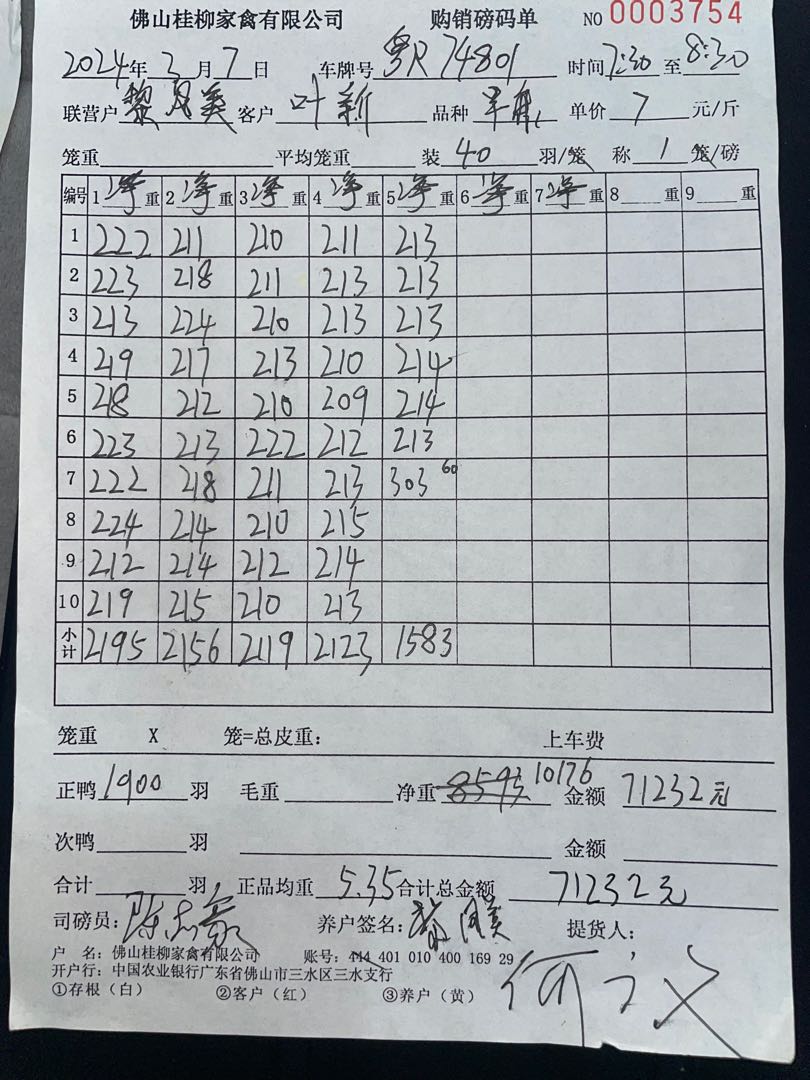 佛山桂柳家禽有限公司 购销磅码单 NO 0003754
2024年 3月 7日 车牌号 粤R74801 时间 7:30 至 8:30
联营户 黎凤美 客户 叶新 品种 单价 7 元/斤
笼重 平均笼重 装 40 羽/笼 称 1 笼/磅
编号 1 净 重 2 净 重 3 净 重 4 净 重 5 净 重 6 净 重 7 净 重 8 重 9 重
1 222 211 210 211 213
2 223 218 211 213 213
3 213 224 210 213 213
4 219 217 213 210 214
5 218 212 210 209 214
6 223 213 222 212 213
7 222 218 211 213 303 60
8 224 214 210 215
9 212 214 212 214
10 219 215 210 213
小计 2195 2156 2119 2123 1583
笼重 X 笼=总皮重: 上车费
正鸭 1900 羽 毛重 净重 8593 10176 金额 71232元
次鸭 羽 金额
合计 羽, 正品均重 5.35 合计总金额 71232元
司磅员: 养户签名: 提货人:
户 名: 佛山桂柳家禽有限公司 账号: 444 401 010 400 169 29
开户行: 中国农业银行广东省佛山市三水区三水支行
①存根（白） ②客户（红） ③养户（黄）